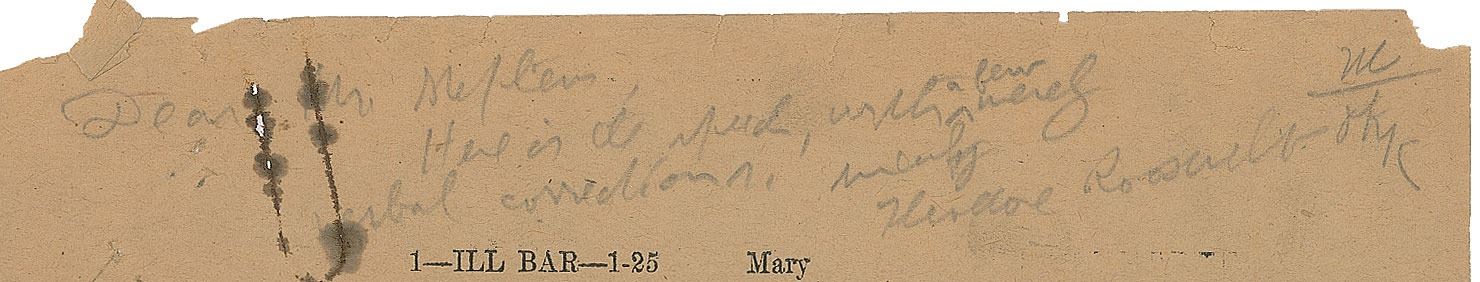 Dear Mr.
Here is the speech, with a few merely
verbal corrections.
Theodore Roosevelt
1—ILL BAR—1-25 Mary